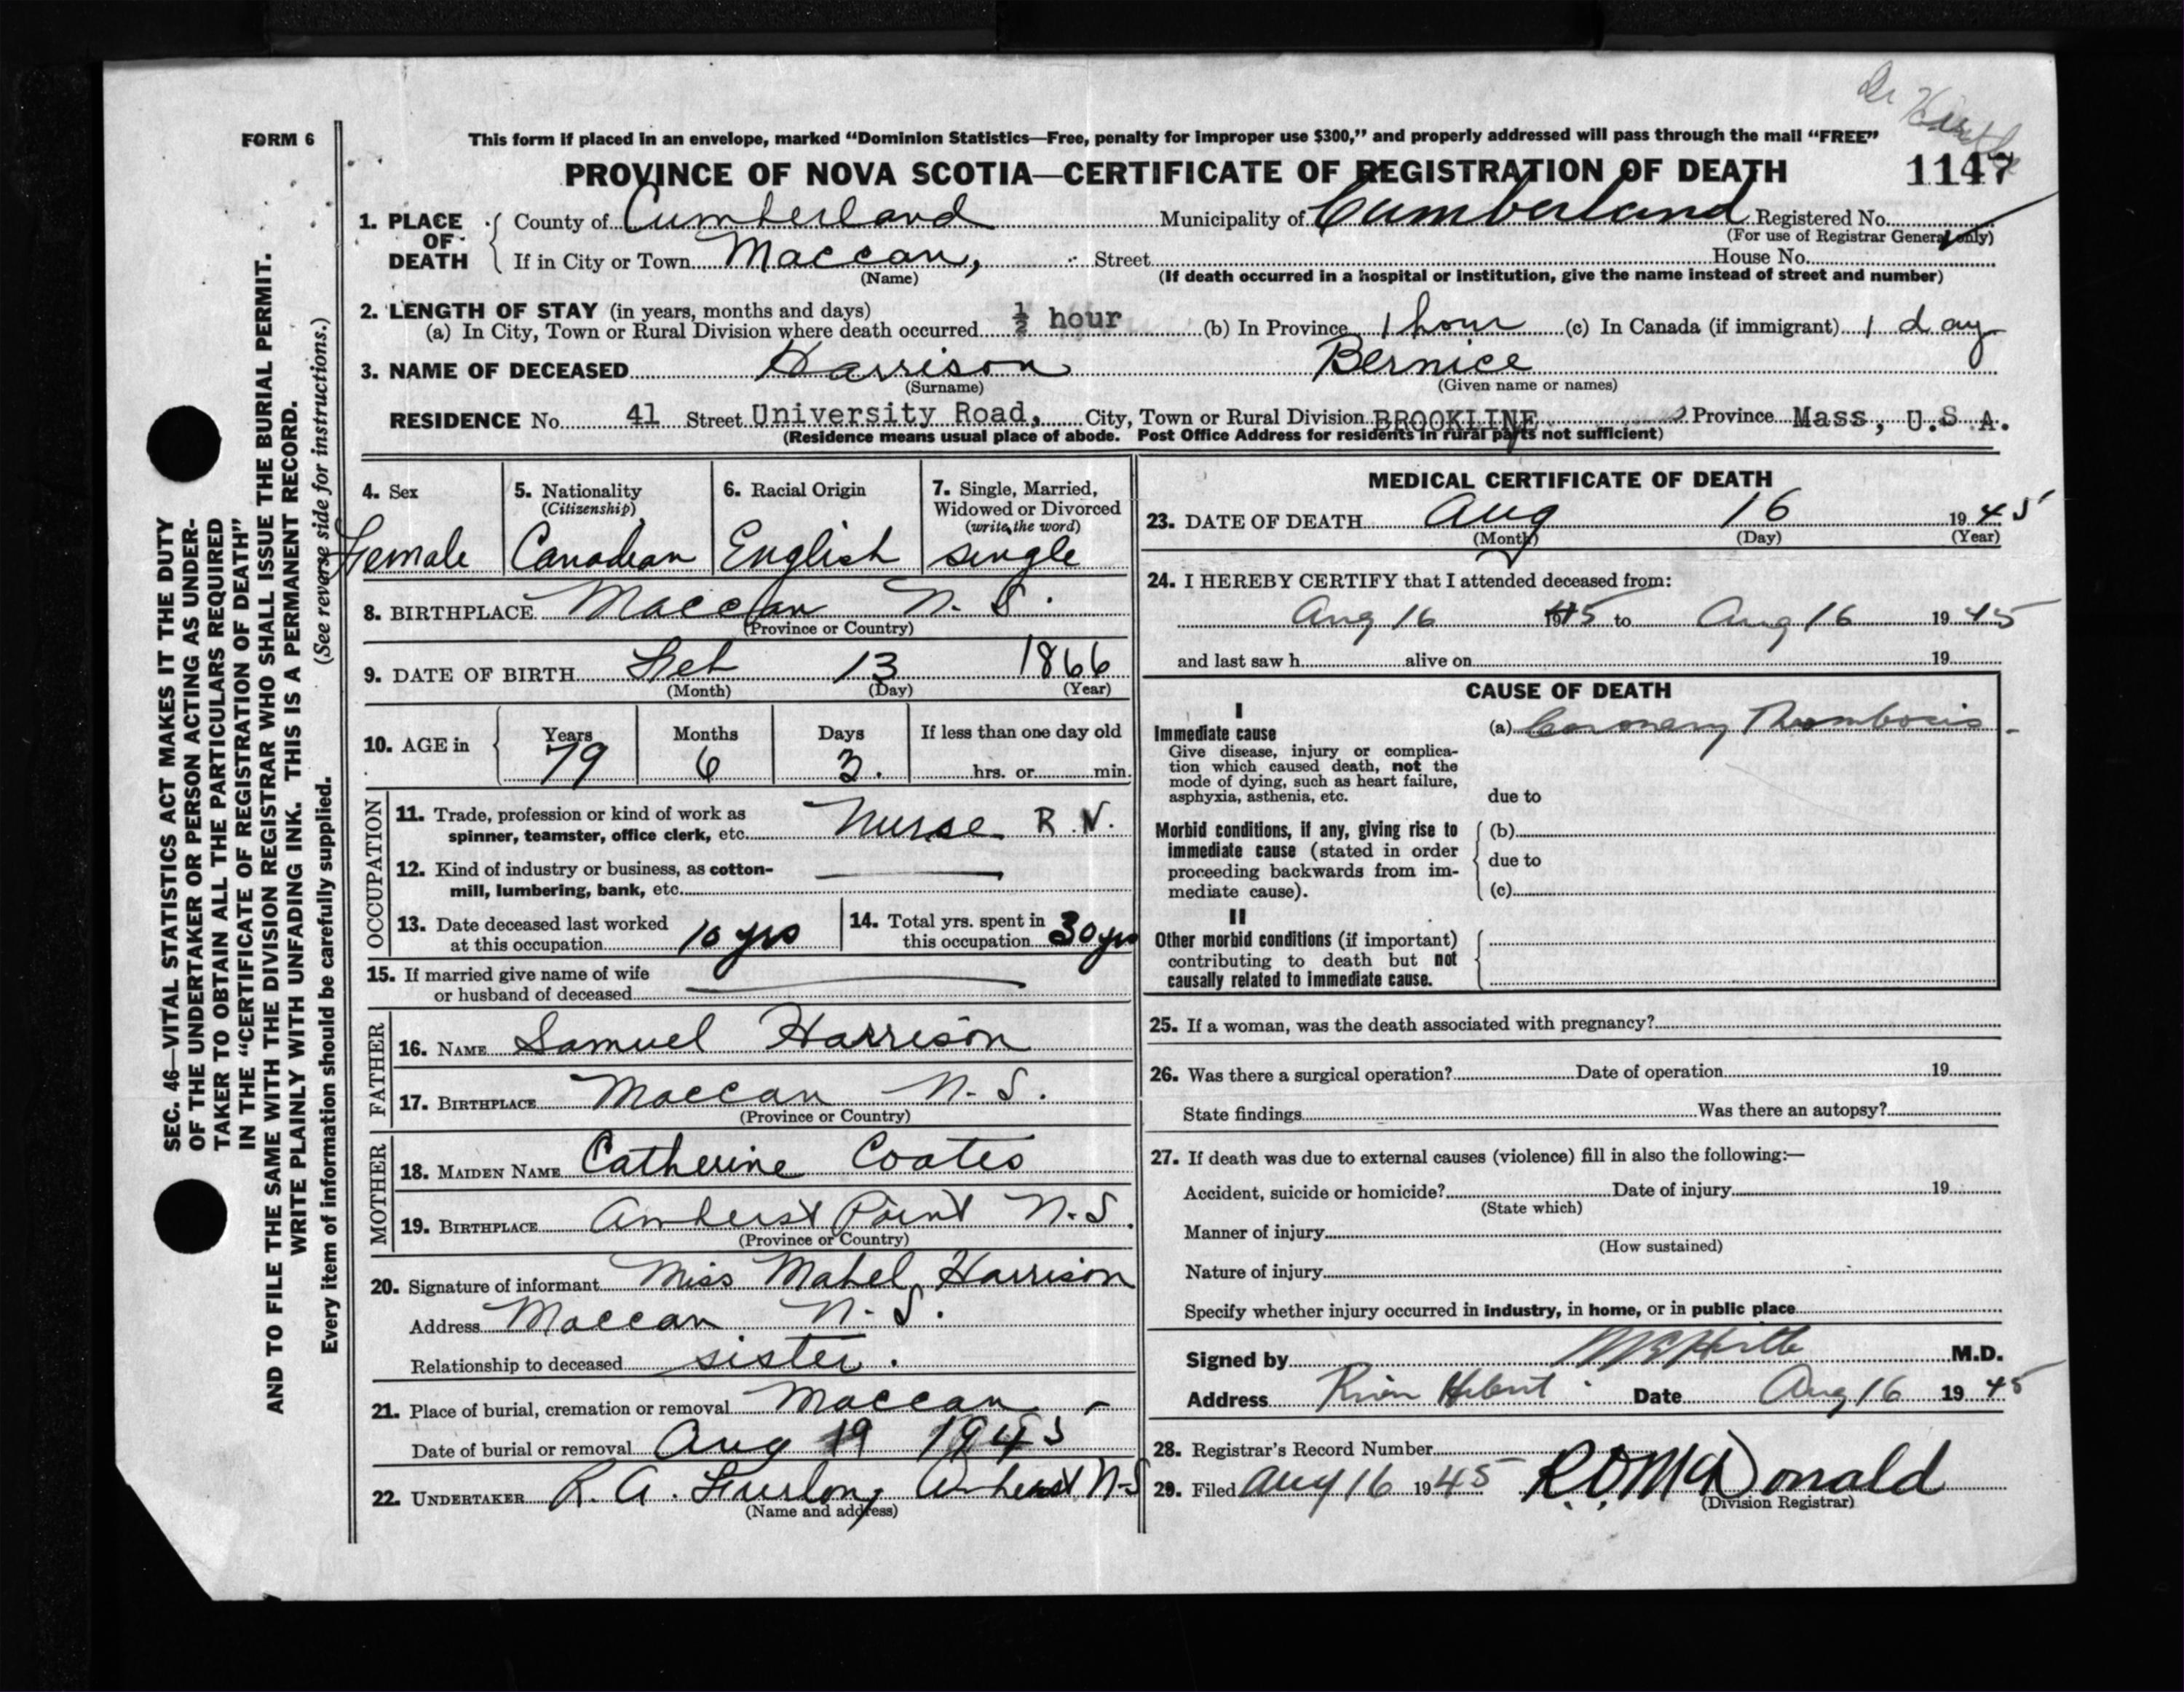 Dr
FORM 6
This form if placed in an envelope, marked “Dominion Statistics—Free, penalty for improper use $300,” and properly addressed will pass through the mail “FREE”
PROVINCE OF NOVA SCOTIA—CERTIFICATE OF REGISTRATION OF DEATH 1147
1. PLACE OF DEATH County of Cumberland Municipality of Cumberland Registered No.
(For use of Registrar General only)
If in City or Town Maccan, Street House No.
(Name) (If death occurred in a hospital or institution, give the name instead of street and number)
2. LENGTH OF STAY (in years, months and days)
(a) In City, Town or Rural Division where death occurred ½ hour (b) In Province 1 hour (c) In Canada (if immigrant) 1 day
3. NAME OF DECEASED Harrison Bernice
(Surname) (Given name or names)
RESIDENCE No. 41 Street University Road, City, Town or Rural Division BROOKLINE Province Mass, U.S.A.
(Residence means usual place of abode. Post Office Address for residents in rural parts not sufficient)
4. Sex
Female
5. Nationality
(Citizenship)
Canadian
6. Racial Origin
English
7. Single, Married,
Widowed or Divorced
(write the word)
single
8. BIRTHPLACE Maccan N.S.
(Province or Country)
9. DATE OF BIRTH Feb 13 1866
(Month) (Day) (Year)
10. AGE in Years Months Days If less than one day old
79 6 3. hrs. or min.
OCCUPATION
11. Trade, profession or kind of work as
spinner, teamster, office clerk, etc. Nurse R.N.
12. Kind of industry or business, as cotton-
mill, lumbering, bank, etc. —
13. Date deceased last worked
at this occupation 10 yrs
14. Total yrs. spent in
this occupation 30 yrs
15. If married give name of wife
or husband of deceased —
FATHER
16. NAME Samuel Harrison
17. BIRTHPLACE Maccan N.S.
(Province or Country)
MOTHER
18. MAIDEN NAME Catherine Coates
19. BIRTHPLACE Amherst Point N.S.
(Province or Country)
20. Signature of informant Miss Mabel Harrison
Address Maccan N.S.
Relationship to deceased sister.
21. Place of burial, cremation or removal Maccan -
Date of burial or removal Aug 19 1945
22. UNDERTAKER R. A. Furlong Amherst N-S
(Name and address)
MEDICAL CERTIFICATE OF DEATH
23. DATE OF DEATH Aug 16 1945
(Month) (Day) (Year)
24. I HEREBY CERTIFY that I attended deceased from:
Aug 16 1945 to Aug 16 1945
and last saw h alive on 19
CAUSE OF DEATH
I
Immediate cause
Give disease, injury or complica-
tion which caused death, not the
mode of dying, such as heart failure,
asphyxia, asthenia, etc.
(a) Coronary Thrombosis -
due to
Morbid conditions, if any, giving rise to
immediate cause (stated in order
proceeding backwards from im-
mediate cause).
(b)
due to
(c)
II
Other morbid conditions (if important)
contributing to death but not
causally related to immediate cause.
25. If a woman, was the death associated with pregnancy?
26. Was there a surgical operation? Date of operation 19
State findings Was there an autopsy?
27. If death was due to external causes (violence) fill in also the following:—
Accident, suicide or homicide? Date of injury 19
(State which)
Manner of injury
(How sustained)
Nature of injury
Specify whether injury occurred in industry, in home, or in public place
Signed by M.D.
Address River Hebert Date Aug 16 1945
28. Registrar's Record Number
29. Filed Aug 16 1945 R.O. McDonald
(Division Registrar)
SEC. 46—VITAL STATISTICS ACT MAKES IT THE DUTY
OF THE UNDERTAKER OR PERSON ACTING AS UNDER-
TAKER TO OBTAIN ALL THE PARTICULARS REQUIRED
IN THE “CERTIFICATE OF REGISTRATION OF DEATH”
AND TO FILE THE SAME WITH THE DIVISION REGISTRAR WHO SHALL ISSUE THE BURIAL PERMIT.
WRITE PLAINLY WITH UNFADING INK. THIS IS A PERMANENT RECORD.
Every item of information should be carefully supplied. (See reverse side for instructions.)